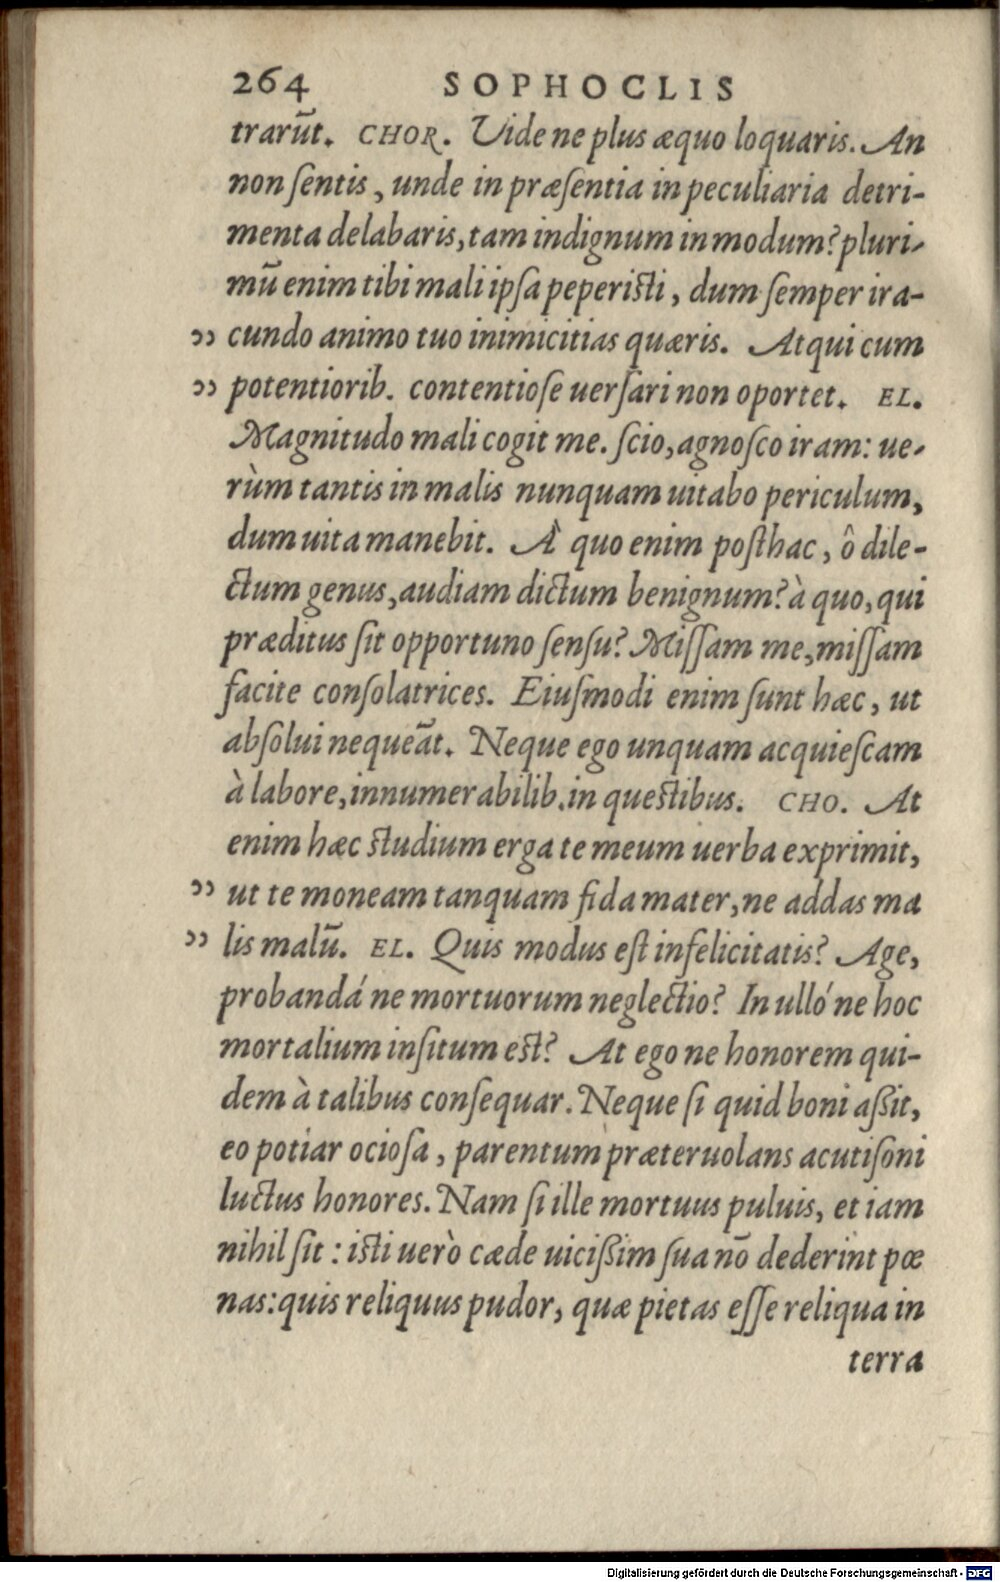 264 SOPHOCLIS
trarũt. CHOR. Vide ne plus æquo loquaris. An
non ſentis, unde in præſentia in peculiaria detri-
menta delabaris, tam indignum in modum? pluri-
mũ enim tibi mali ipſa peperiſti, dum ſemper ira-
„ cundo animo tuo inimicitias quæris. Atqui cum
„ potentiorib. contentioſe uerſari non oportet. EL.
Magnitudo mali cogit me. ſcio, agnoſco iram: ue-
rùm tantis in malis nunquam uitabo periculum,
dum uita manebit. À quo enim poſthac, ô dile-
ctum genus, audiam dictum benignum? à quo, qui
præditus ſit opportuno ſenſu? Miſſam me, miſſam
facite conſolatrices. Eiuſmodi enim ſunt hæc, ut
abſolui nequeãt. Neque ego unquam acquieſcam
à labore, innumerabilib. in queſtibus. CHO. At
enim hæc ſtudium erga te meum uerba exprimit,
„ ut te moneam tanquam fida mater, ne addas ma
„ lis malũ. EL. Quis modus eſt infelicitatis? Age,
probandá ne mortuorum neglectio? In ulló ne hoc
mortalium inſitum eſt? At ego ne honorem qui-
dem à talibus conſequar. Neque ſi quid boni aßit,
eo potiar ocioſa, parentum præteruolans acutiſoni
luctus honores. Nam ſi ille mortuus puluis, et iam
nihil ſit: iſti uerò cæde uicißim ſua nõ dederint pœ
nas: quis reliquus pudor, quæ pietas eſſe reliqua in
terra
Digitalisierung gefördert durch die Deutsche Forschungsgemeinschaft - DFG